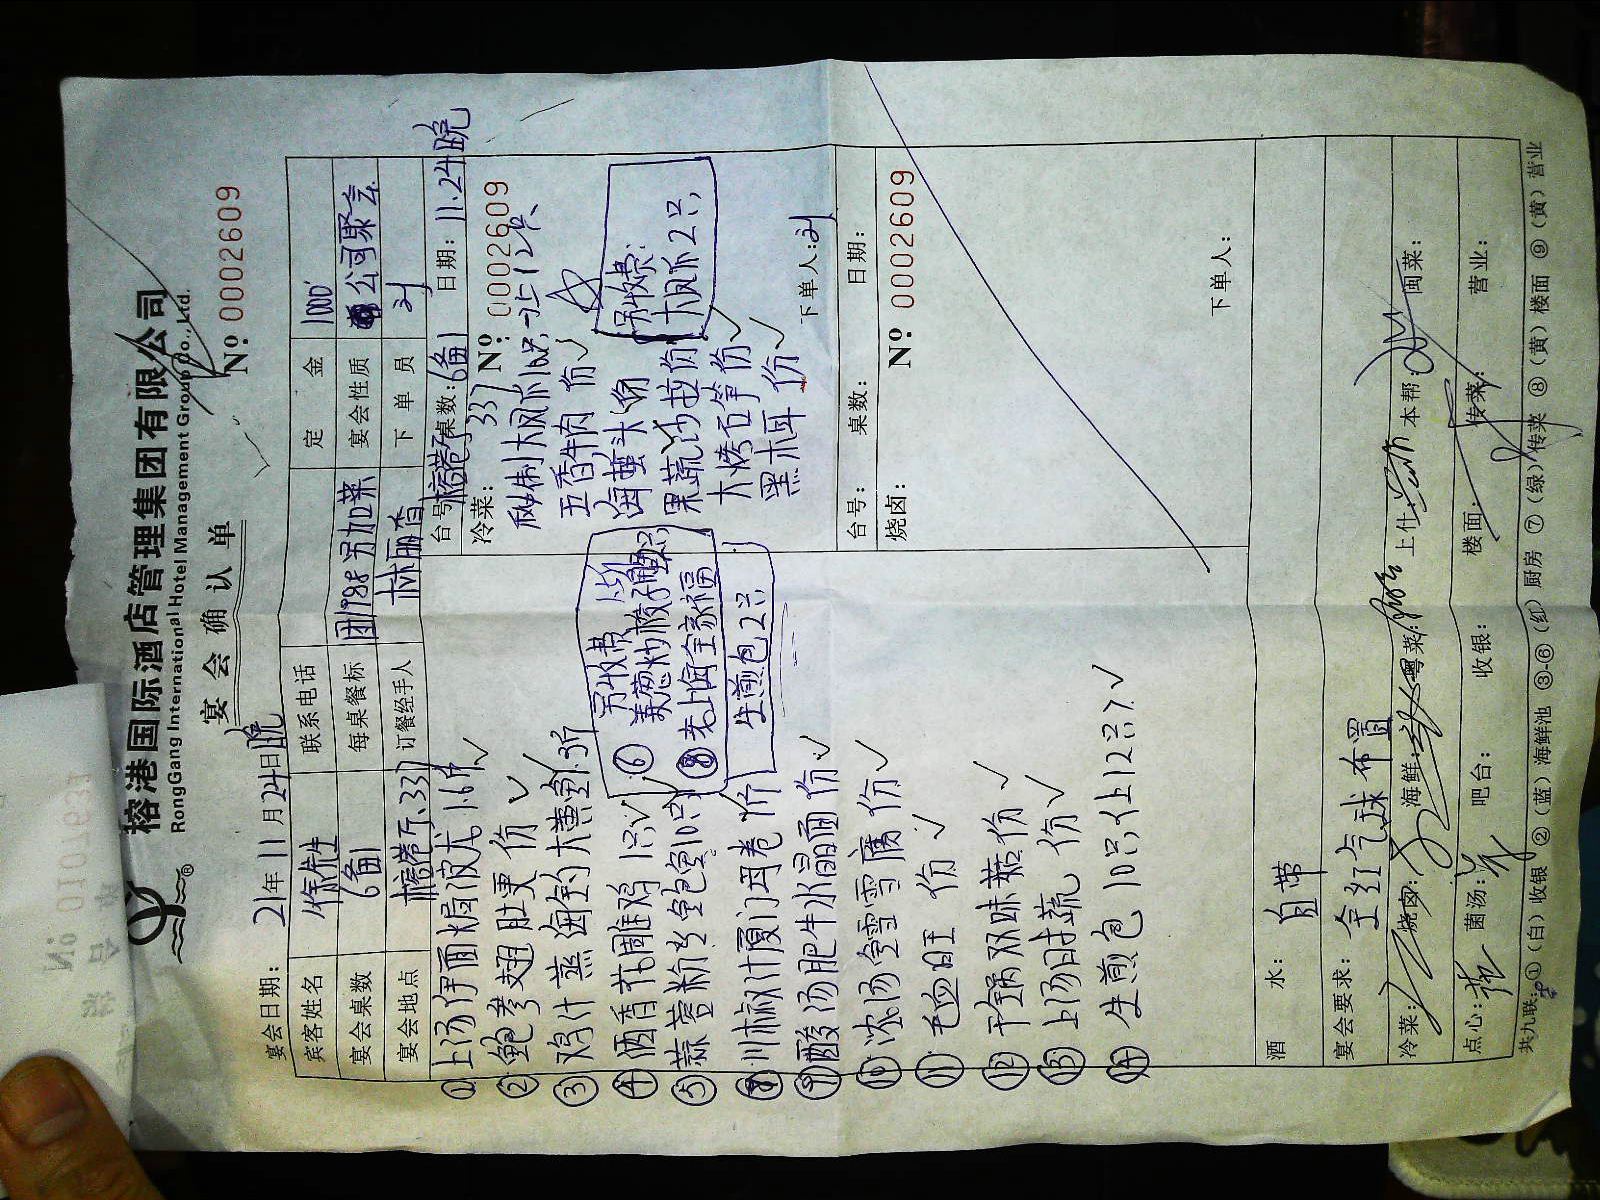 榕港国际酒店管理集团有限公司
RongGang International Hotel Management Group Co., Ltd.
宴会确认单
№ 0002609
宴会日期：21年11月24日晚
宾客姓名 徐先生 联系电话 定金 1000
宴会桌数 6备1 每桌餐标 团1988 另加菜 宴会性质 公司聚会
宴会地点 榕港厅337 订餐经手人 林丽香 下单员 刘
① 上汤伊面焗波龙 1.6斤 ✓
② 鲍参翅肚羹 份 ✓
③ 鸡汁蒸海钓大黄鱼 1.3斤
④ 酒香花雕鸡 1只 ✓
⑤ 蒜蓉粉丝鲍鱼 10只
另收费
⑥ 葱炒梭子蟹
⑧ 老上海全家福
生煎包2只
⑧ 川椒汁厦门海卷 份
⑨ 酸汤肥牛水晶面 份 ✓
⑩ 浓汤雪腐 份 ✓
⑪ 毛血旺 份 ✓
⑫ 干锅双味菇 份 ✓
⑬ 上汤时蔬 份 ✓
⑭ 生煎包 10只(上12只) ✓
台号：榕港厅337 桌数：6备1 日期：11.24晚
冷菜：
№ 0002609
秘制大凤爪10只，上12只
五香牛肉 份 ✓
海蜇头 份
果蔬沙拉 份
大烤石笋 份 ✓
黑木耳 份 ✓
另收费：
大凤爪2只
下单人：刘
台号： 桌数： 日期：
烧卤：
№ 0002609
下单人：
酒水： 自带
宴会要求： 全红气球布置
冷菜： 烧卤： 海鲜： 粤菜： 上什： 本帮： 闽菜：
点心： 菌汤： 吧台： 收银： 楼面： 传菜： 营业：
共九联：①（白）收银 ②（蓝）海鲜池 ③-⑥（红）厨房 ⑦（绿）传菜 ⑧（黄）楼面 ⑨（黄）营业